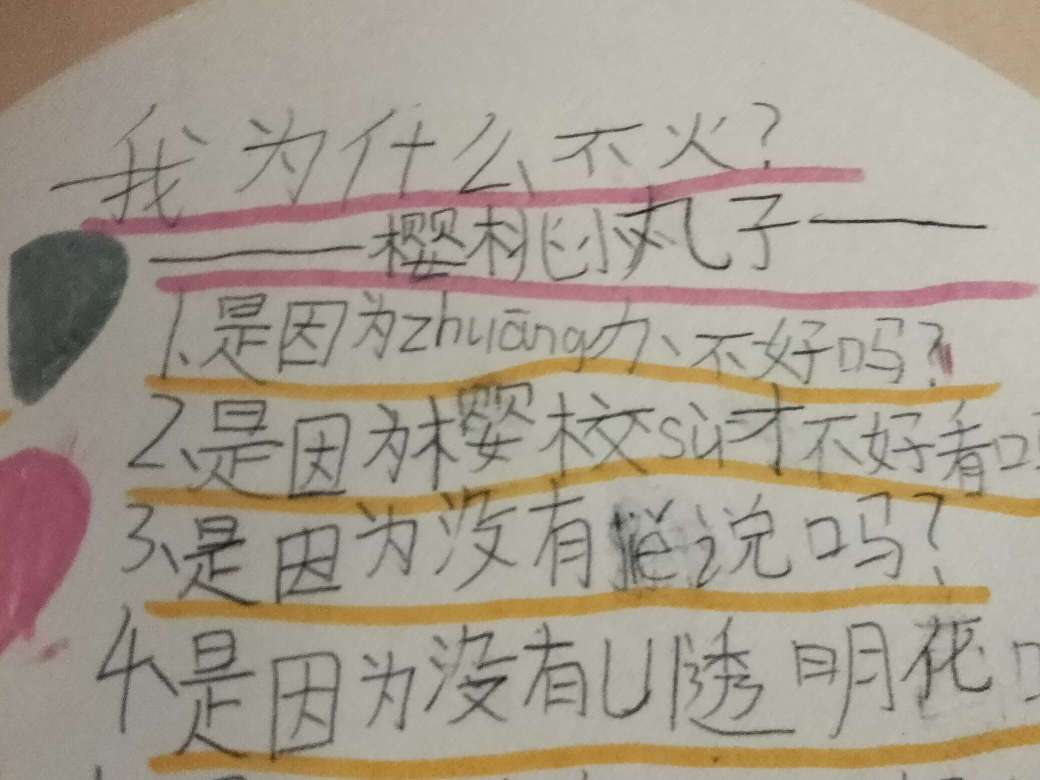 我为什么不火?
——樱桃小丸子——
1、是因为zhuāng力、不好吗?
2、是因为樱校sù才不好看
3、是因为没有说吗?
4、是因为没有透明花